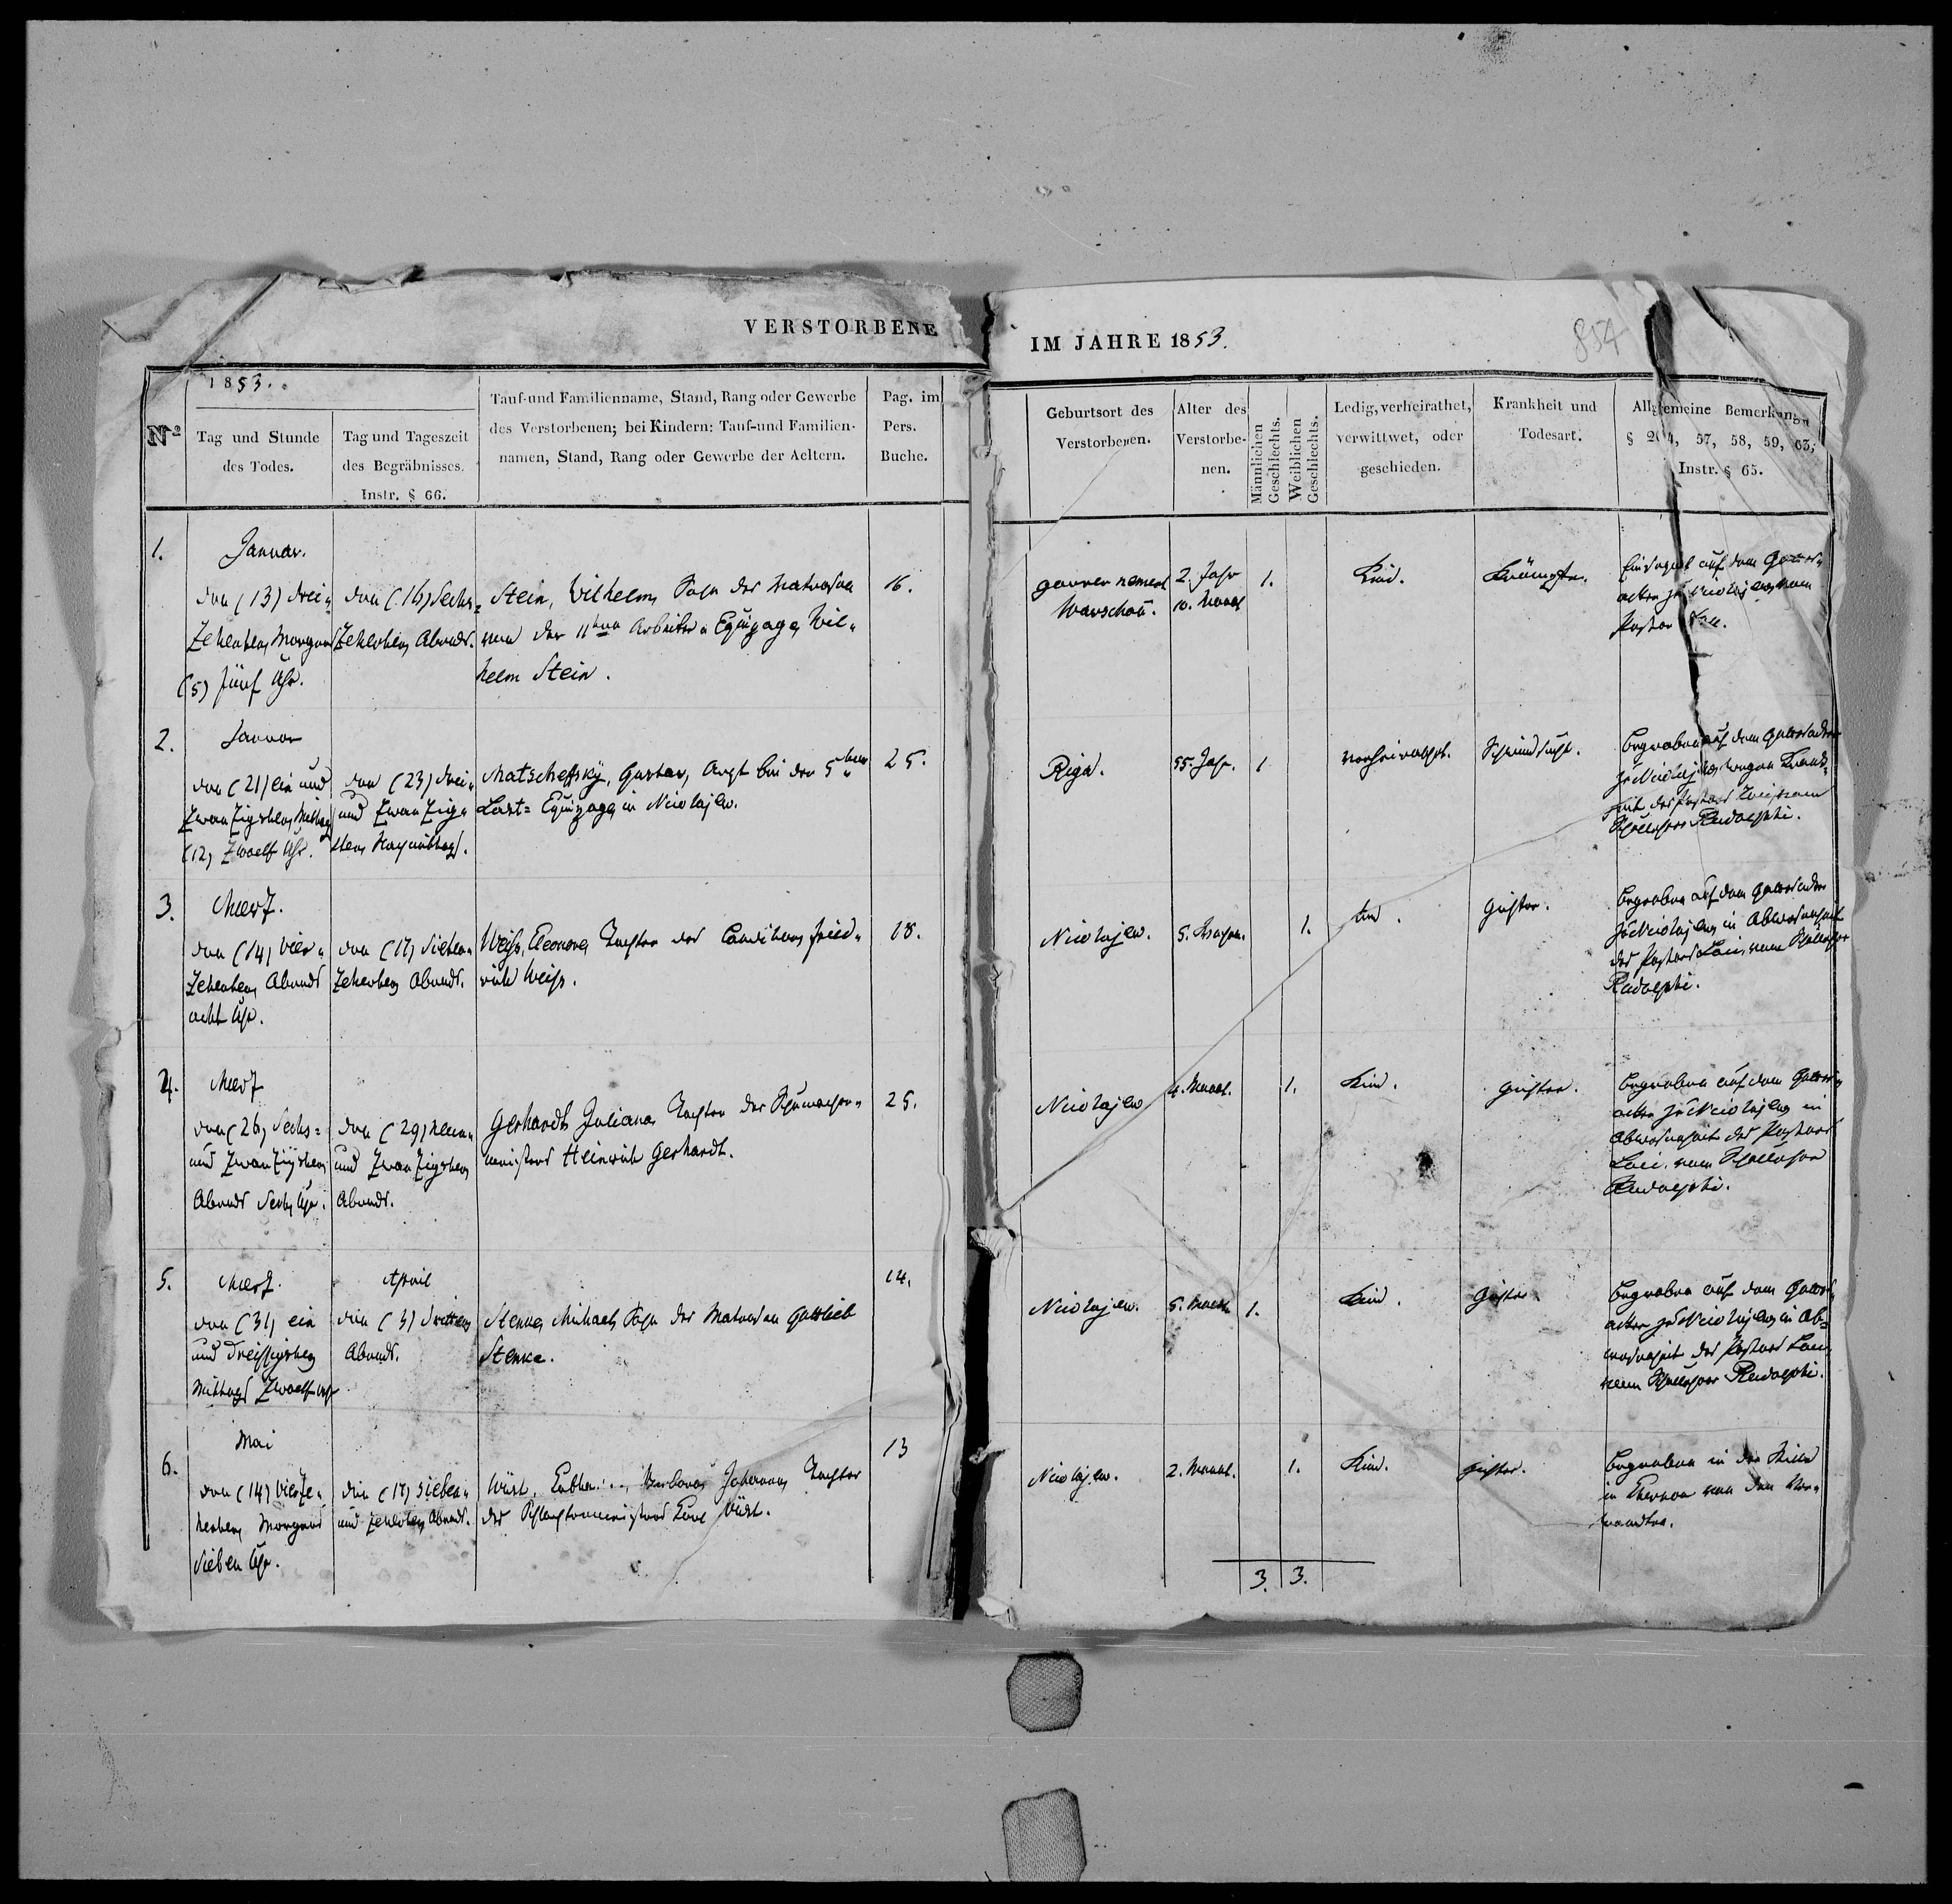 VERSTORBENE
IM JAHRE 1853.
854
1853.
Nº
Tag und Stunde
des Todes.
Tag und Tageszeit
des Begräbnisses.
Instr. § 66.
Tauf-und Familienname, Stand, Rang oder Gewerbe
des Verstorbenen; bei Kindern: Tauf-und Familien-
namen, Stand, Rang oder Gewerbe der Aeltern.
Pag. im
Pers.
Buche.
Geburtsort des
Verstorbenen.
Alter des
Verstorbe-
nen.
Männlichen
Geschlechts.
Weiblichen
Geschlechts.
Ledig, verheirathet,
verwittwet, oder
geschieden.
Krankheit und
Todesart.
Allgemeine Bemerkungen
§ 204, 57, 58, 59, 63;
Instr. § 65.
1.
Januar.
den (13) drei„
zehenten Morgens
(5) fünf Uhr.
den (16) Sechs=
zehenten Abends.
Stein, Wilhelm, Sohn des Matrosen
von der 11ten Arbeiter„ Equipage, Wil„
helm Stein.
16.
gouvernement
Warschau.
2. Jahr
10. Monat
1.
Kind.
Krämpfe.
auf dem Gottes„
acker zu Nicolajew vom
Pastor
2.
Januar
den (21) ein und
zwanzigsten Mittags
(12) zwoelf Uhr.
den (23) drei„
und zwanzig„
sten Nachmittags.
Matscheffsky, Gustav, Arzt bei der 5ten
Last= Equipage, in Nicolajew.
25.
Riga.
55. Jahr.
1
verheirathet.
Schwindsucht.
begraben auf dem Gottesacker
zu Nicolajew wegen Krank„
heit des Pastors
Schullehrer Rudolphi.
3.
Merz.
den (14) vier„
zehenten Abends
acht Uhr.
den (17) Sieben„
zehenten Abends.
Weiss, Eleonora, Tochter des Conditors Fried„
rich Weiss.
18.
Nicolajew.
5. Wochen.
1.
Kind.
Husten.
begraben auf dem Gottesacker
zu Nicolajew in Abwesenheit
des Pastors Loci, vom Schullehrer
Rudolphi.
4.
Merz
den (26) Sechs=
und zwanzigsten
Abends Sechs Uhr.
den (29) neun„
und zwanzigsten
Abends.
Gerhardt Juliana, Tochter des Schumacher„
meisters Heinrich Gerhardt.
25.
Nicolajew
4. Monat.
1.
Kind.
Husten.
begraben auf dem Gottes„
acker zu Nicolajew in
Abwesenheit des Pastors
Loci, vom Schullehrer
Rudolphi.
5.
Merz.
den (31) ein
und dreissigsten
Mittags zwoelf Uhr
April
den (3) dritten
Abends.
Stenke, Michael, Sohn des Matrosen Gottlieb
Stenke.
14.
Nicolajew.
5. Monat
1.
Kind.
Husten.
begraben auf dem Gottes„
acker zu Nicolajew in Ab=
wesenheit des Pastors Loci,
vom Schullehrer Rudolphi.
6.
Mai
den (14) vierze„
henten Morgens
Sieben Uhr.
den (17) sieben„
und zehenten Abends.
Wüst, Barbara, Johanna, Tochter
des Wüst.
13
Nicolajew.
2. Monat.
1.
Kind.
Husten.
begraben in der Stille
in Cherson von den Ver„
wandten.
3. 3.